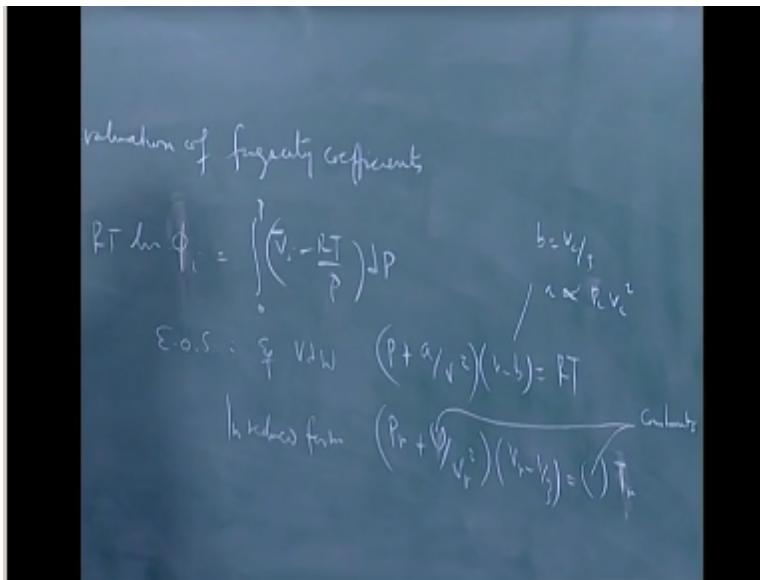 valuation of fugacity coefficients
RT ln ϕᵢ = ∫₀ᴾ (V̄ᵢ - RT/P) dP
b = Vc/3
a ∝ Pc Vc²
E.O.S. : VdW (P + a/V²)(V - b) = RT
In reduced form (Pr + ( )/Vr²)(Vr - 1/3) = ( ) Tr
Constants